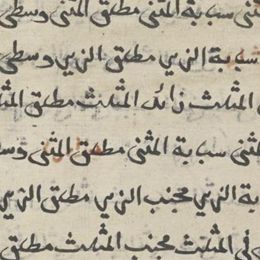 سبابة المثنى مطلق المثنى وسطى
سبابة الزير مطلق الزير وسطى
المثلث زائد المثلث مطلق
المثنى سبابة المثنى مطلق المثنى
الزير مجنب الزير مطلق الزير
المثلث مجنب المثلث مطلق